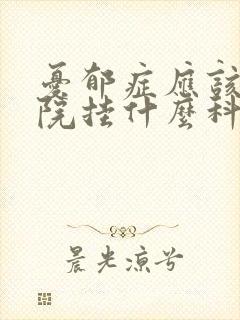 憂郁症應該
院挂什麼科
晨光涼兮